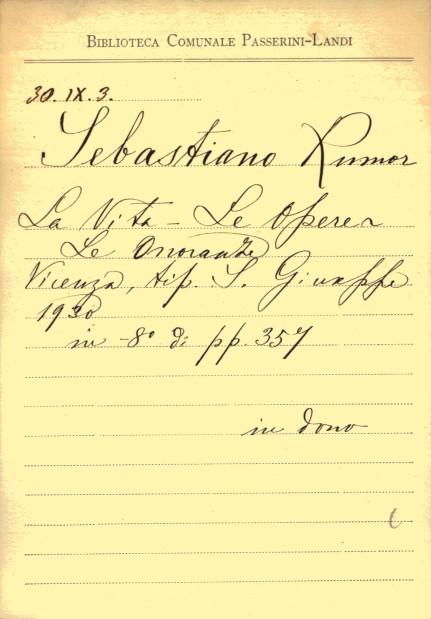 BIBLIOTECA COMUNALE PASSERINI-LANDI
30. IX. 3.
Sebastiano Rumor
La Vita - Le Opere -
Le Onoranze
Vicenza, tip. S. Giuseppe
1930
in -8° di pp. 357
in dono